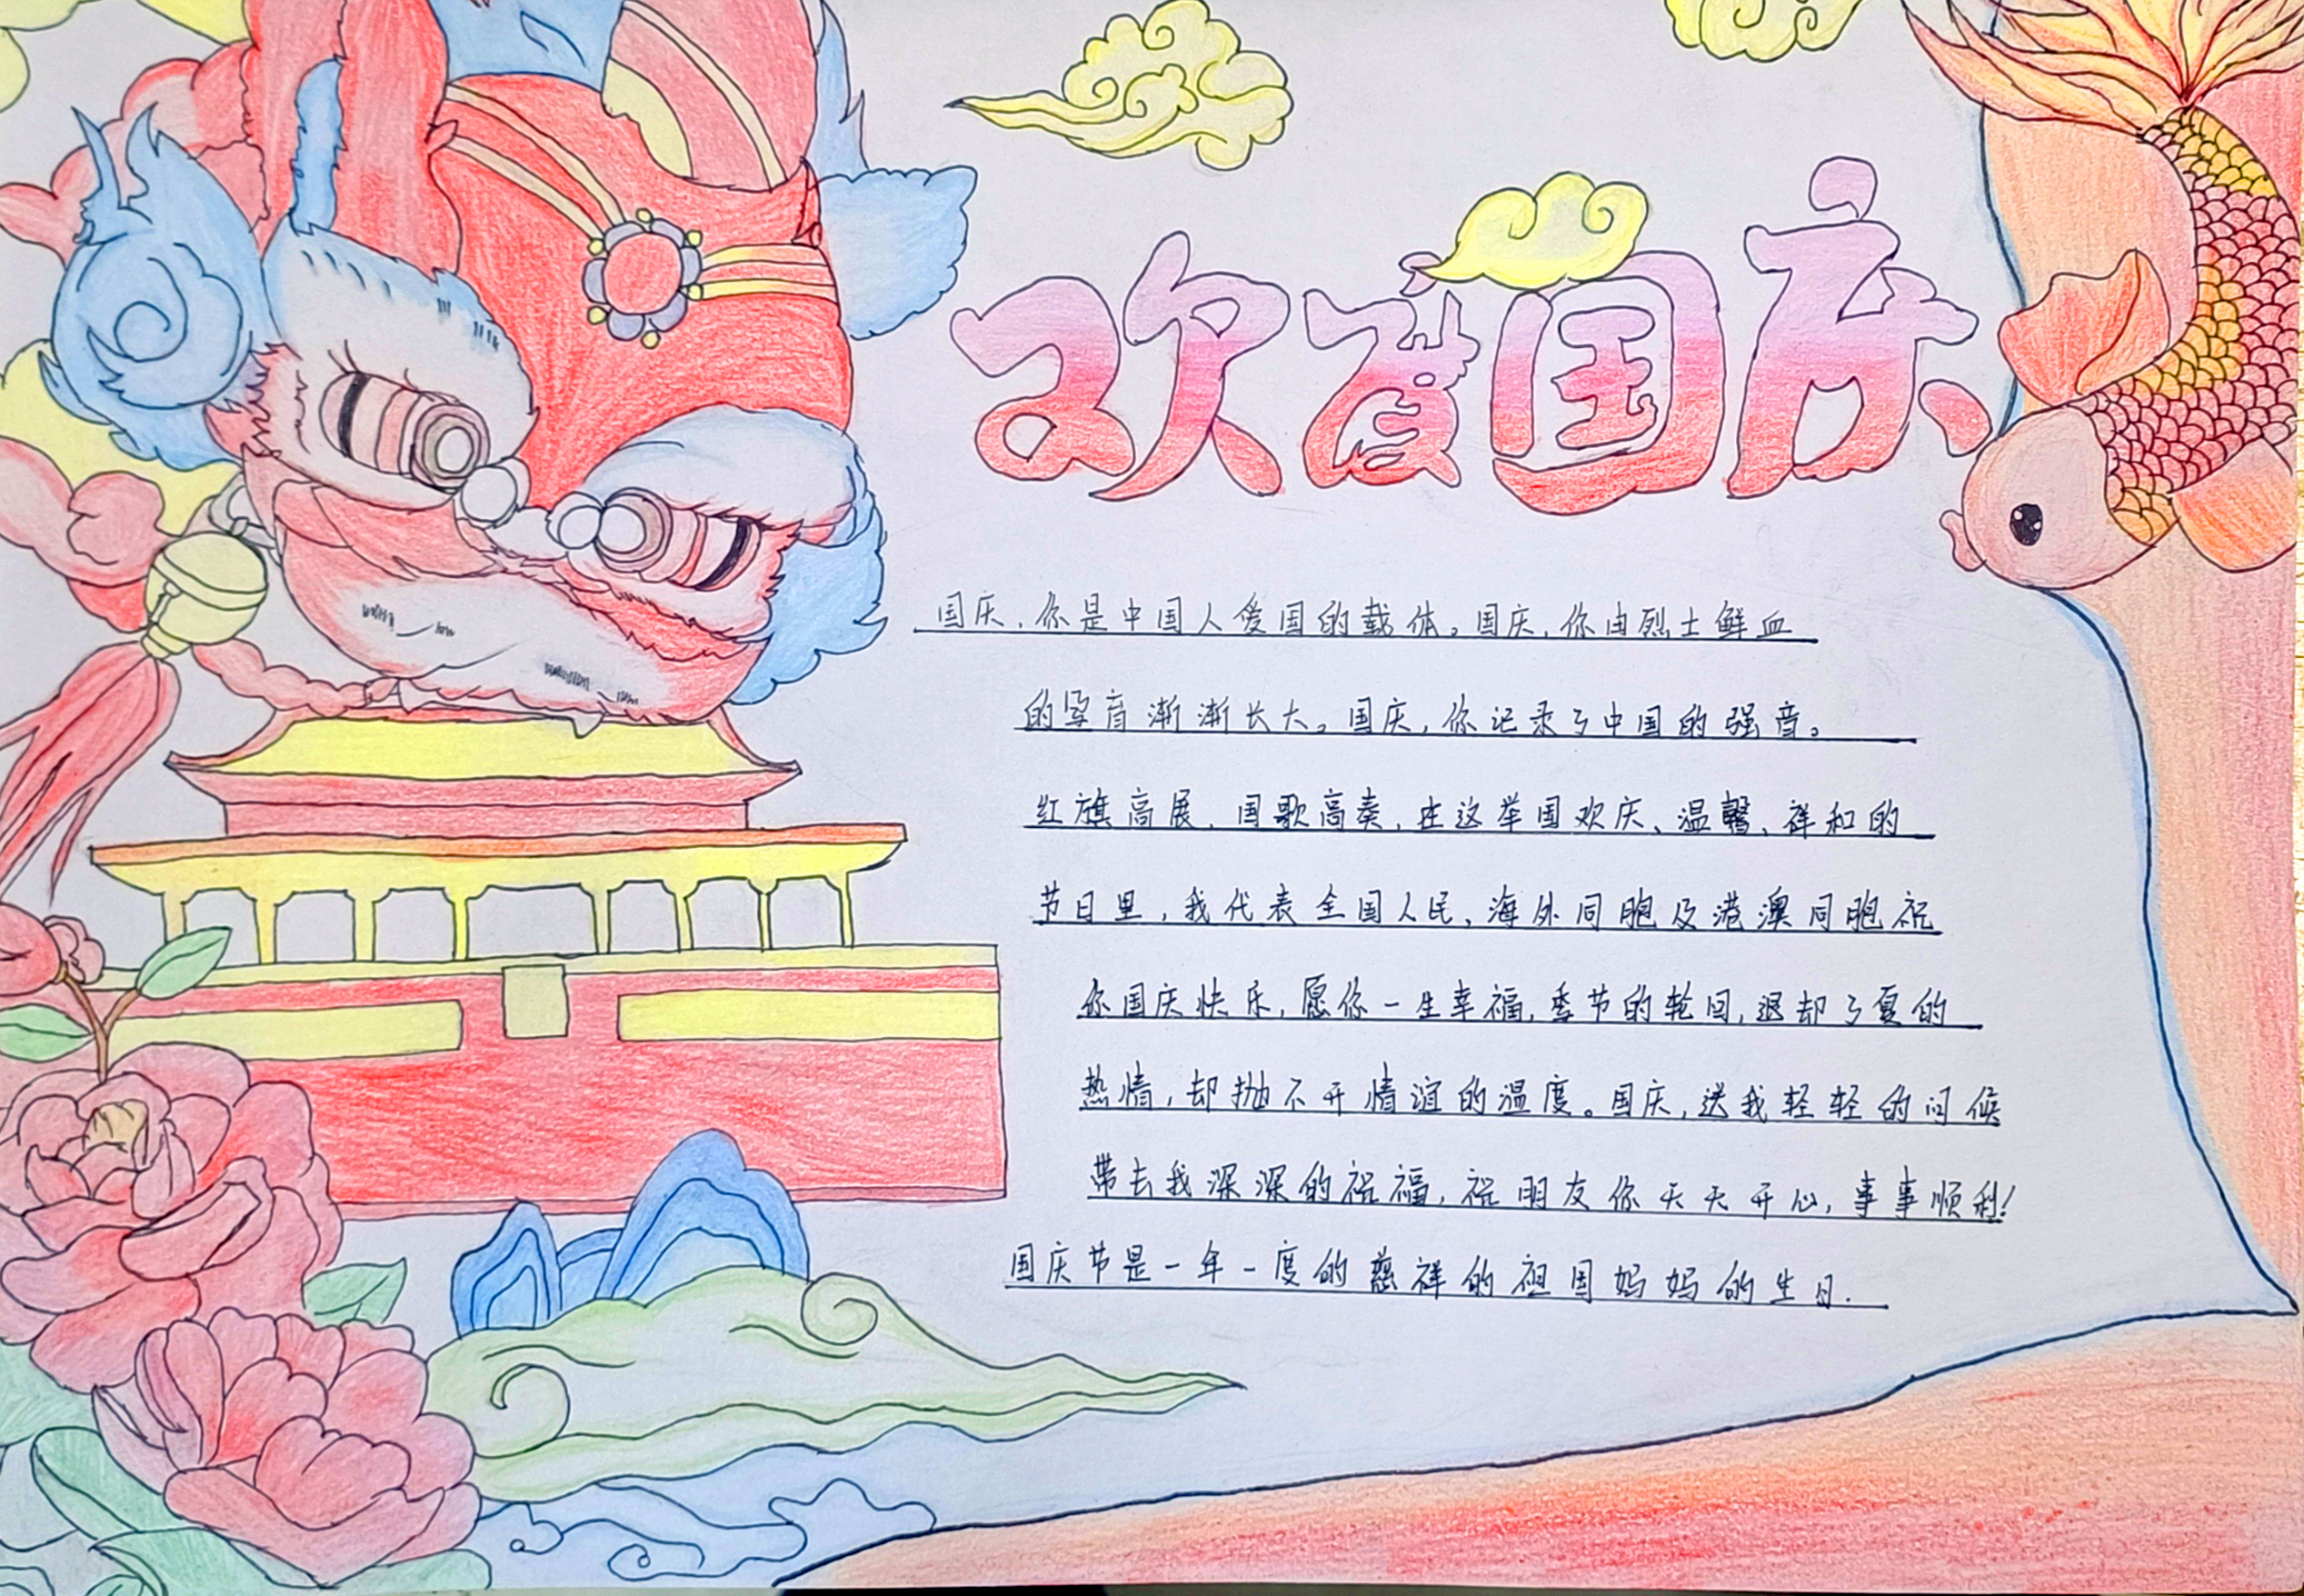 欢度国庆
国庆，你是中国人爱国的载体。国庆，你由烈士鲜血
的孕育渐渐长大。国庆，你记录了中国的强音。
红旗高展，国歌高奏，在这举国欢庆、温馨、祥和的
节日里，我代表全国人民，海外同胞及港澳同胞祝
你国庆快乐，愿你一生幸福，季节的轮回，退却了夏的
热情，却抛不开情谊的温度。国庆，送我轻轻的问候
带去我深深的祝福，祝朋友你天天开心，事事顺利！
国庆节是一年一度的慈祥的祖国妈妈的生日.